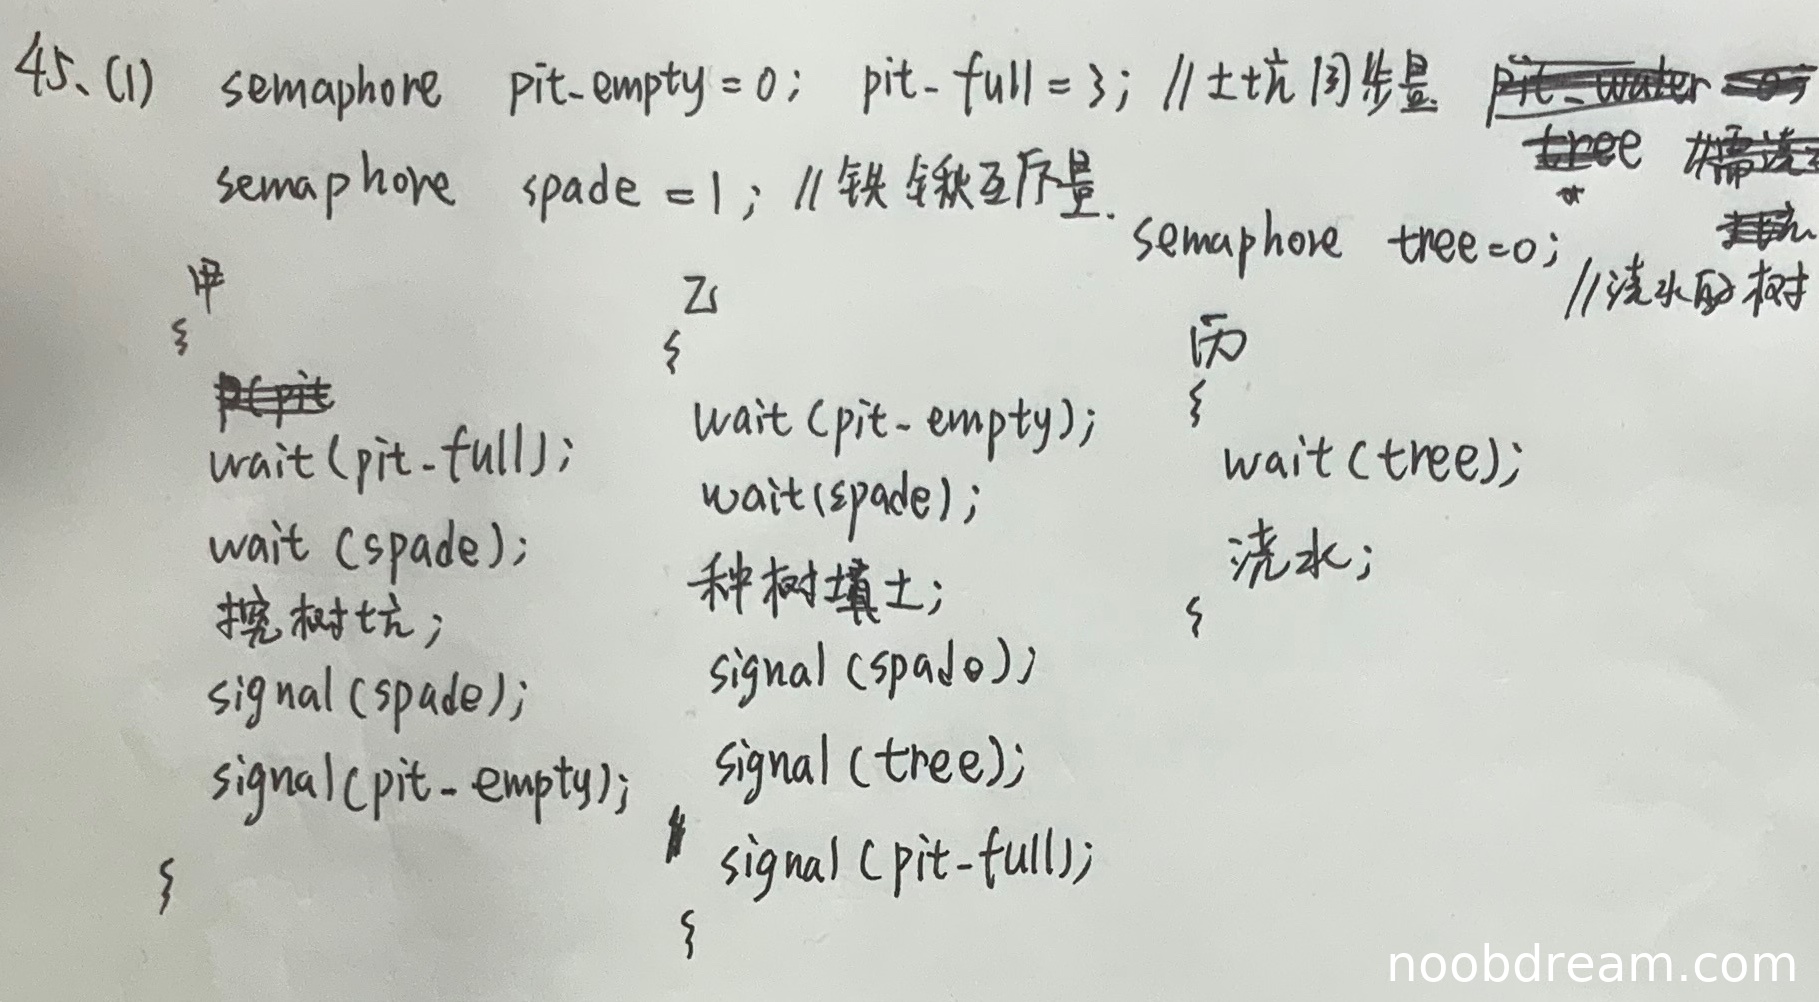 45、(1) semaphore pit_empty=0; pit_full=3; //土坑同步量
semaphore spade=1; //铁锹互斥量.
semaphore tree=0;
//浇水的树
甲
{
wait(pit_full);
wait(spade);
挖树坑;
signal(spade);
signal(pit_empty);
}
乙
{
wait(pit_empty);
wait(spade);
种树填土;
signal(spade);
signal(tree);
signal(pit_full);
}
丙
{
wait(tree);
浇水;
}
noobdream.com